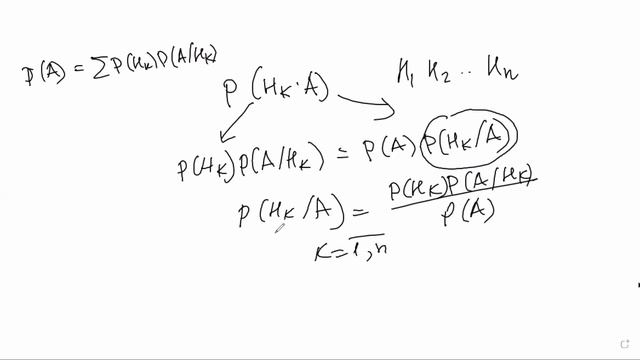 P(A) = ∑P(Hₖ)P(A/Hₖ)
P(Hₖ·A)
H₁ H₂ .. Hₙ
P(Hₖ)P(A/Hₖ) = P(A) P(Hₖ/A)
P(Hₖ/A) = P(Hₖ)P(A/Hₖ) / P(A)
K = 1,n